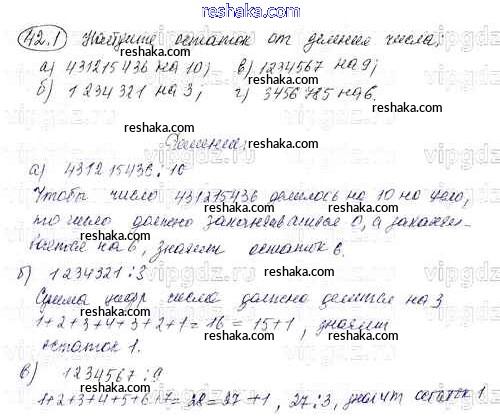 reshaka.com
42.1 Найдите остаток от деления числа:
а) 431215436 на 10; в) 1234567 на 9;
б) 1234321 на 3; г) 3456785 на 6.
Решение:
а) 431215436 : 10
Чтобы число 431215436 делилось на 10 на цело,
то число должно заканчиваться 0, а заканчи-
вается на 6, значит остаток 6.
б) 1234321 : 3
Сумма цифр числа должна делится на 3
1+2+3+4+3+2+1 = 16 = 15+1, значит
остаток 1.
в) 1234567 : 9
1+2+3+4+5+6+7 = 28 = 27+1, 27:3, значит остаток 1